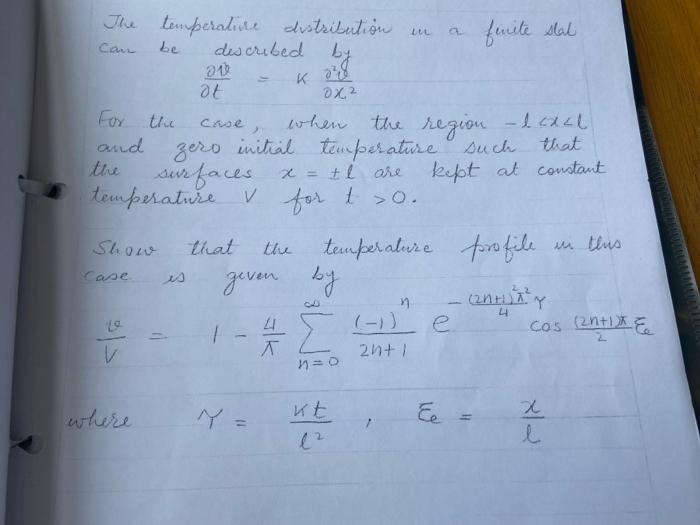 The temperature distribution in a finite slab
can be described by
∂v/∂t = K ∂²v/∂x²
For the case, when the region -l<x<l
and zero initial temperature such that
the surfaces x = ±l are kept at constant
temperature V for t >0.
Show that the temperature profile in this
case is given by
v/V = 1 - 4/π ∑_{n=0}^{∞} (-1)^n/(2n+1) e^{-(2n+1)²π²/4 γ} cos (2n+1)π/2 ξ
where γ = Kt/l² , ξ = x/l